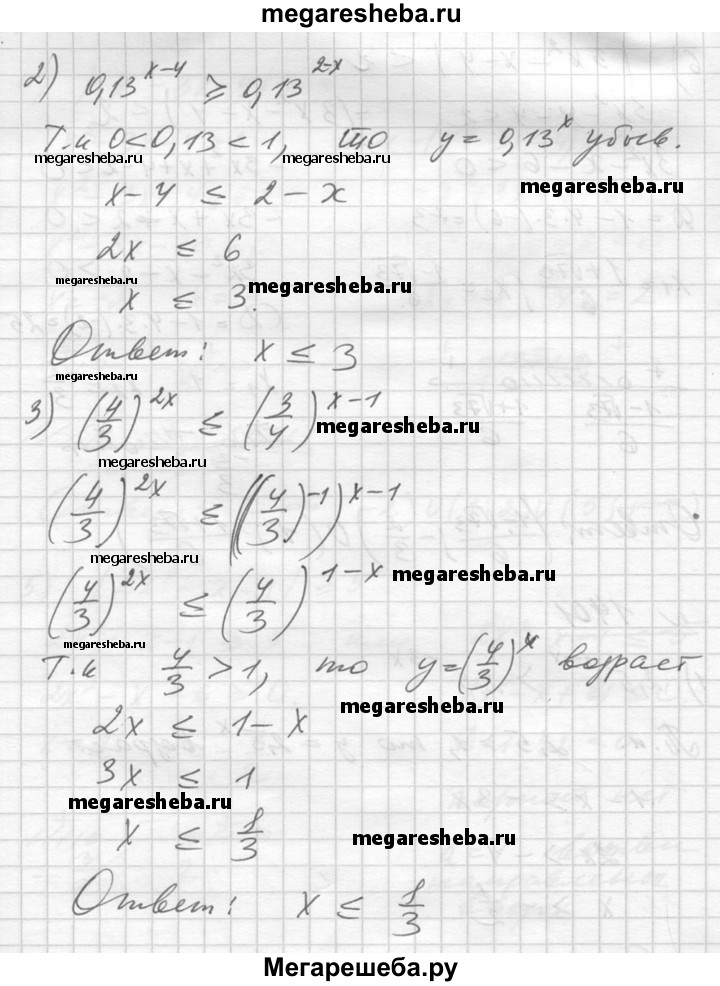 megaresheba.ru
2) 0,13^(x-4) ≥ 0,13^(2-x)
Т.к 0<0,13<1, то y=0,13^x убыв.
megaresheba.ru megaresheba.ru megaresheba.ru
x-4 ≤ 2-x
2x ≤ 6
megaresheba.ru megaresheba.ru
x ≤ 3.
Ответ: x ≤ 3
megaresheba.ru
3) (4/3)^(2x) ≤ (3/4)^(x-1)
megaresheba.ru
megaresheba.ru
(4/3)^(2x) ≤ ((4/3)^(-1))^(x-1)
megaresheba.ru
(4/3)^(2x) ≤ (4/3)^(1-x)
megaresheba.ru
megaresheba.ru
Т.к 4/3 > 1, то y=(4/3)^x возраст
megaresheba.ru
2x ≤ 1-x
3x ≤ 1
megaresheba.ru
x ≤ 1/3
megaresheba.ru
Ответ: x ≤ 1/3
Мегарешеба.ру